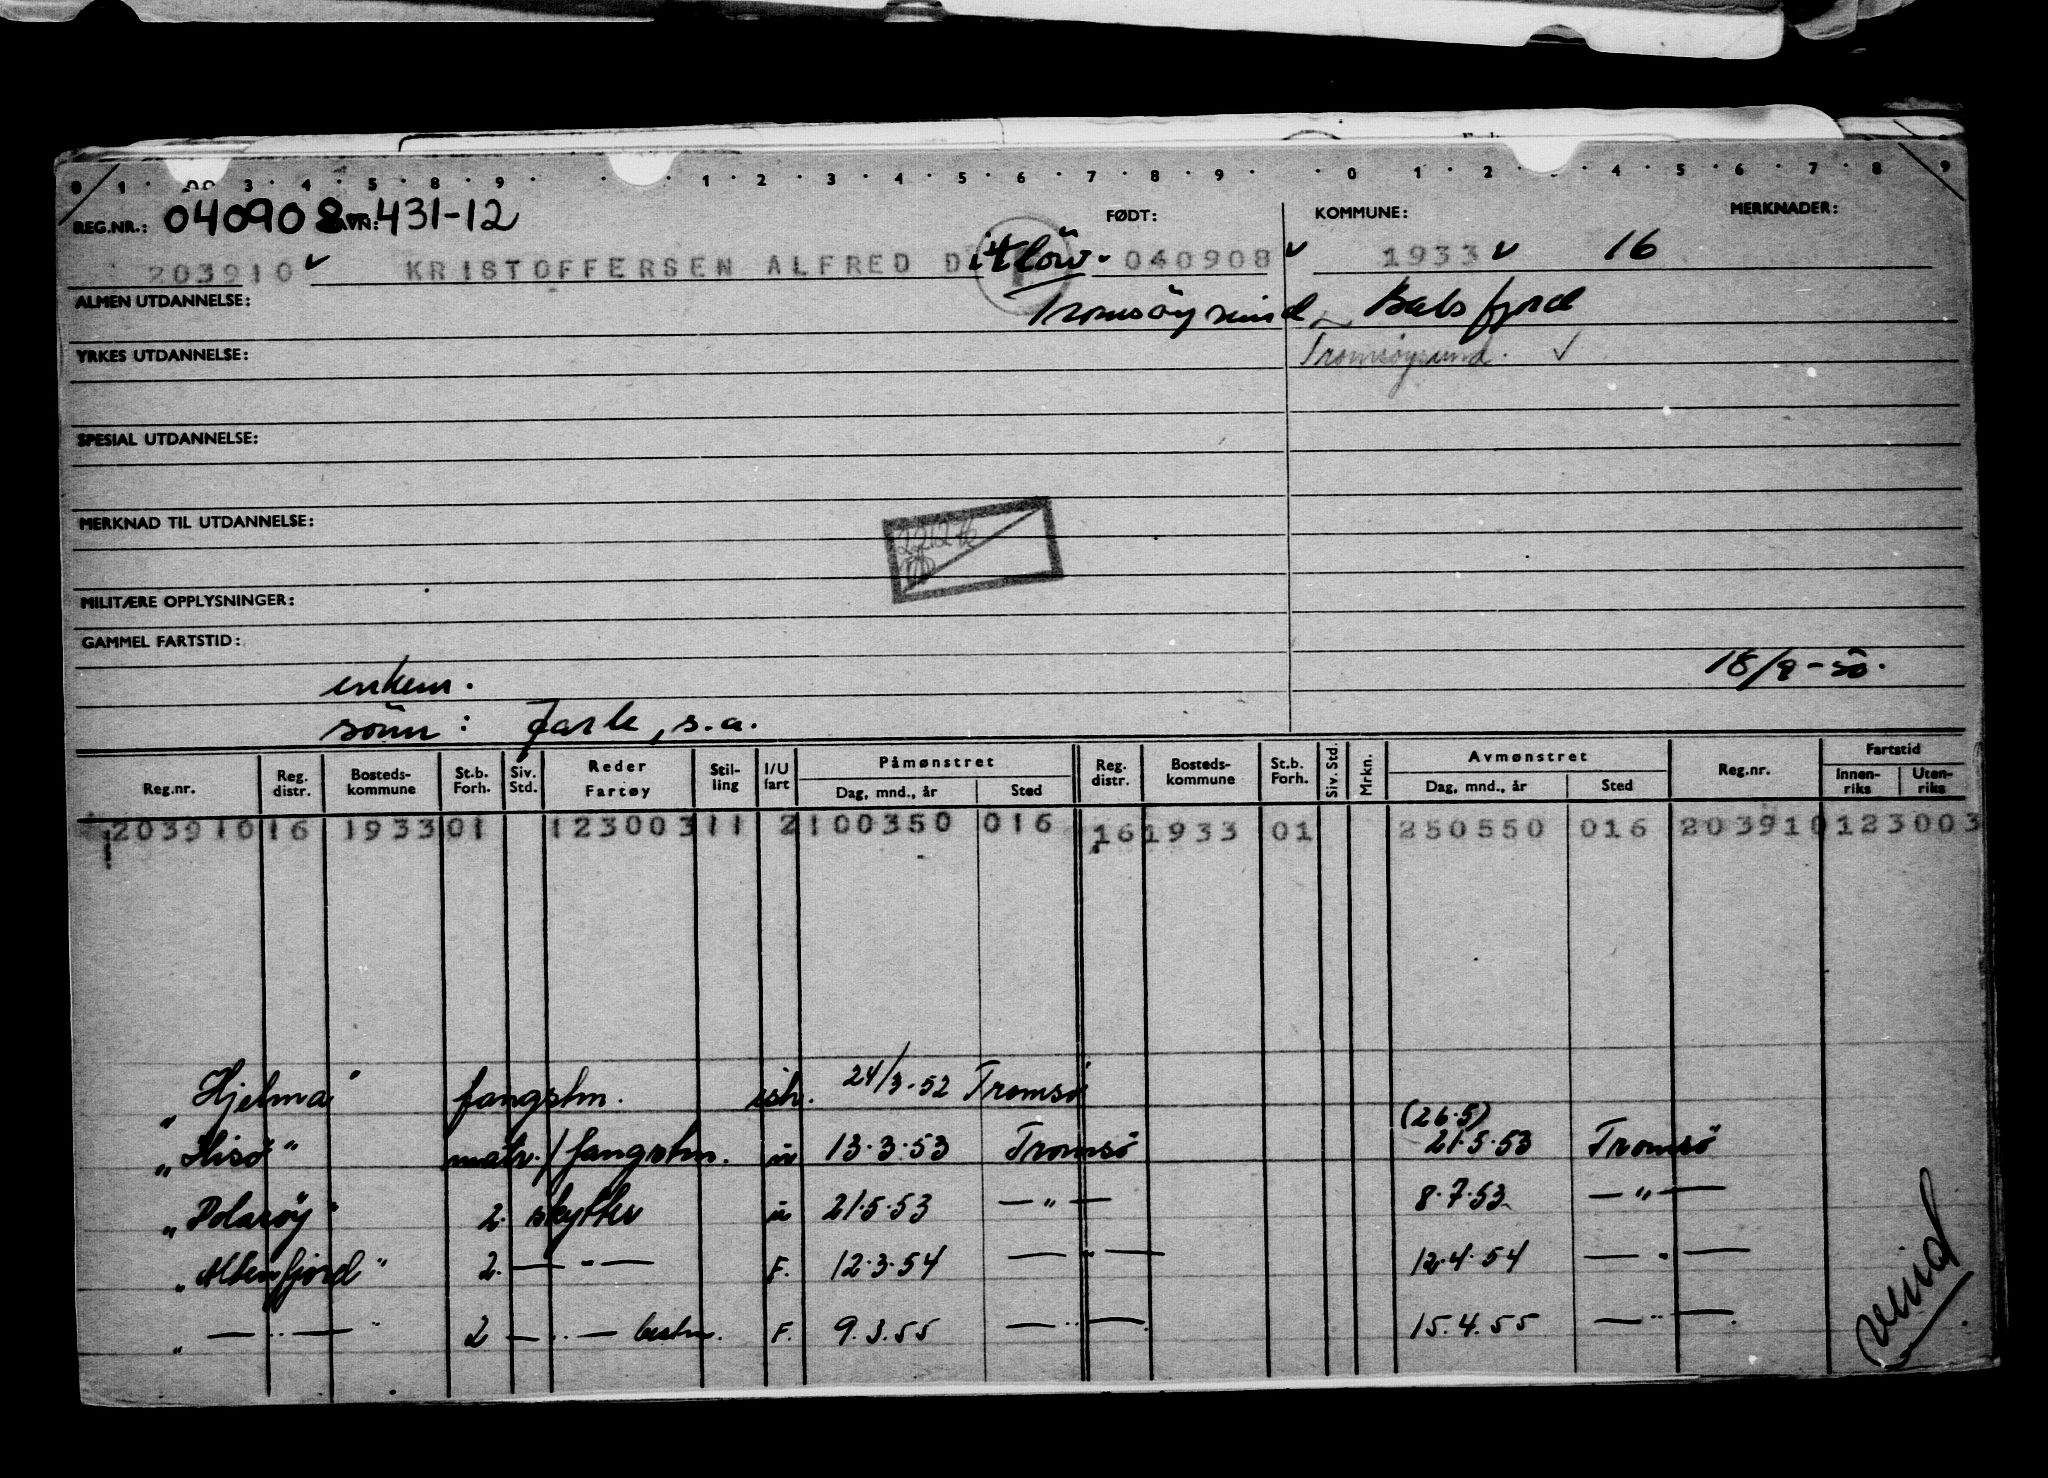 0 1 3 4 5 8 9 1 2 3 4 5 6 7 8 9 0 1 2 4 5 6 7 8 9
REG.NR.: 040908 AVN: 431-12 FØDT: KOMMUNE: MERKNADER:
203910 KRISTOFFERSEN ALFRED Ditlöv. 040908 1933 16
ALMEN UTDANNELSE: Tromsöysund Balsfjord
YRKES UTDANNELSE: Tromsøysund.
SPESIAL UTDANNELSE:
MERKNAD TIL UTDANNELSE:
MILITÆRE OPPLYSNINGER:
GAMMEL FARTSTID:
enkem. 18/9-50.
sönn: Jarle, s.a.
Reg.nr. Reg. distr. Bosteds-kommune St.b. Forh. Siv. Std. Reder Fartøy Stil-ling I/U fart Påmønstret Dag, mnd., år Sted Reg. distr. Bosteds-kommune St.b. Forh. Siv. Std. Mrkn. Avmønstret Dag, mnd., år Sted Reg.nr. Fartstid Innen-riks Uten-riks
203910 16 1933 01 123003 11 2 100350 016 16 1933 01 250550 016 203910 123003
"Hjelma" fangstm. ish. 24/3-52 Tromsö
"Hisö" matr./fangstm. u 13.3.53 Tromsö (26.5) 21.5.53 Tromsö
"Polaröy" 2. skytter u 21.5.53 — " — 8.7.53 — " —
"Altenfjord" 2. — " — F. 12.3.54 — " — 12.4.54 — " —
" — " — " 2 — " — bestm. F. 9.3.55 — " — 15.4.55 — " —
vend